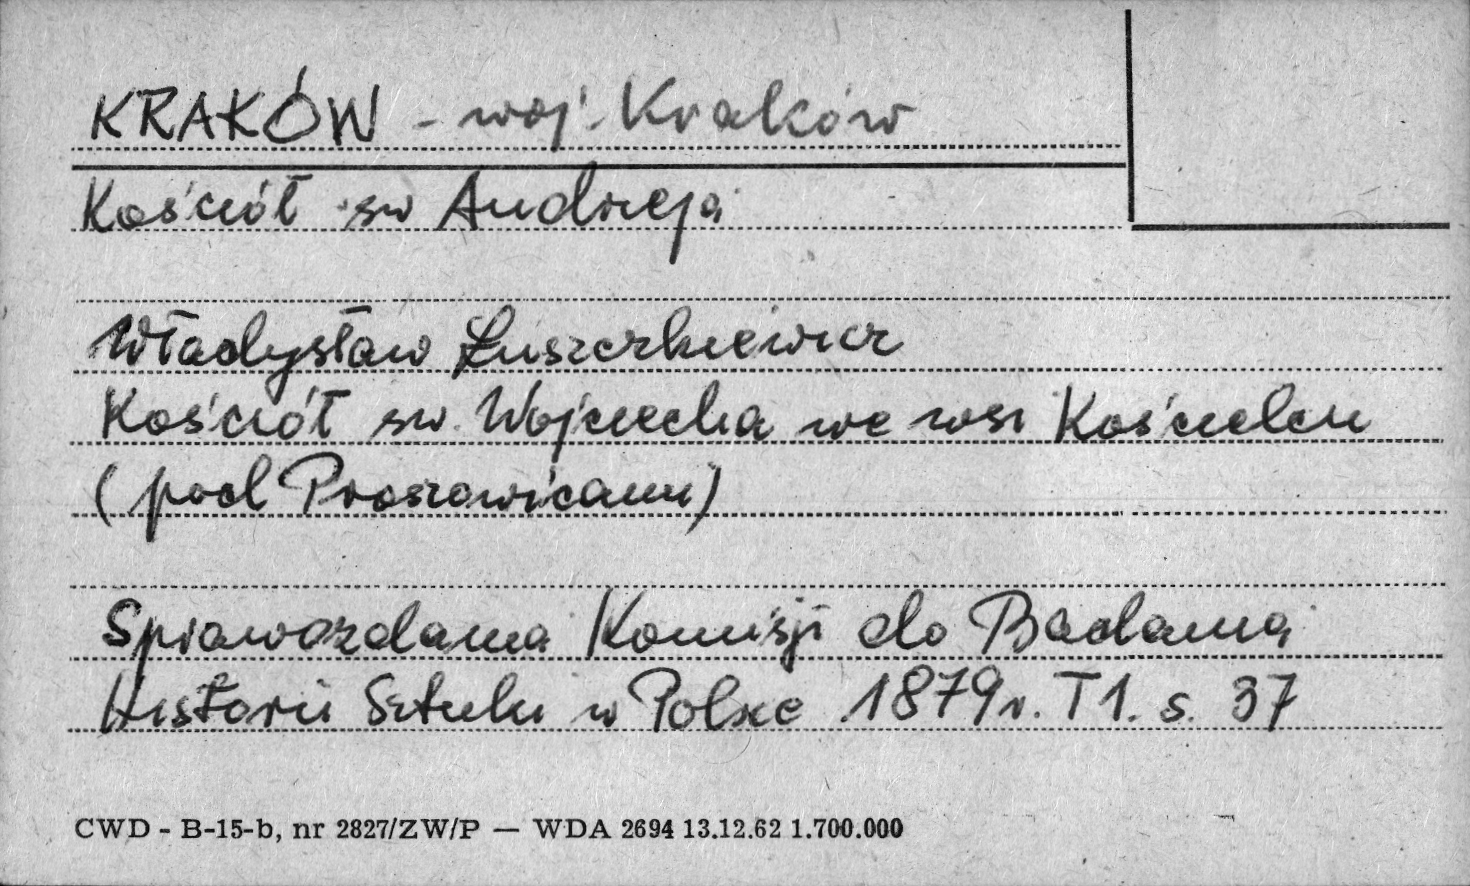 KRAKÓW - woj. Kraków
Kościół św Andrzeja
Władysław Łuszczkiewicz
Kościół św. Wojciecha we wsi Kościelcu
(pod Proszowicami)
Sprawozdania Komisji do Badania
Historii Sztuki w Polsce 1879 r. T 1. s. 37
CWD - B-15-b, nr 2827/ZW/P — WDA 2694 13.12.62 1.700.000